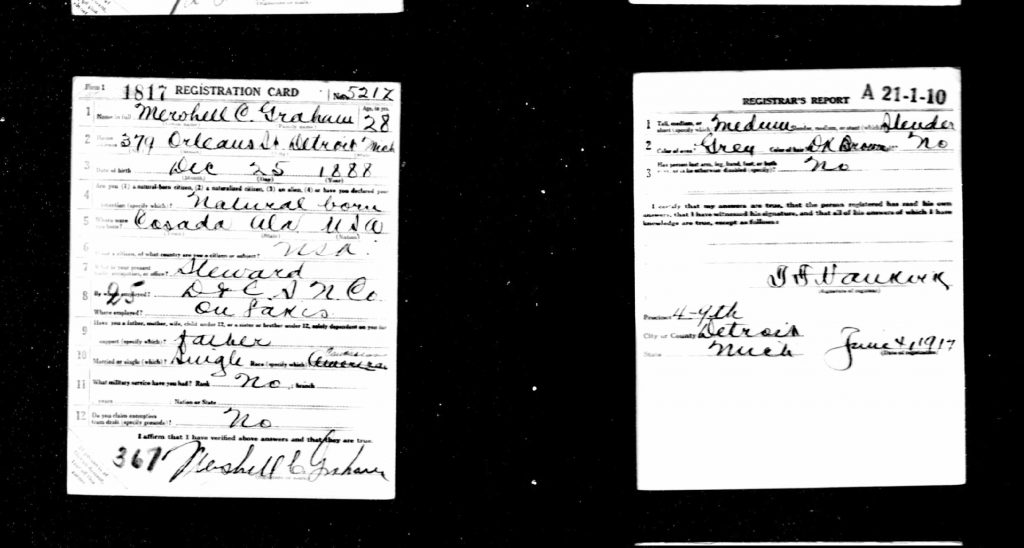 Form 1 1817 REGISTRATION CARD No. 5217
1 Name in full Mershell C. Graham Age, in yrs. 28
2 Home 379 Orleans St. Detroit Mich
3 Date of birth Dec 25 1888
(Month) (Day) (Year)
Are you (1) a natural-born citizen, (2) a naturalized citizen, (3) an alien, (4) or have you declared your
4 intention (specify which)? Natural born
5 Where were you born? Cosada Ala USA
(Town) (State) (Nation)
6 If not a citizen, of what country are you a citizen or subject? USA
7 What is your present trade, occupation, or office? Steward
25
8 By whom employed? D & C S N Co
Where employed? On Lakes
Have you a father, mother, wife, child under 12, or a sister or brother under 12, solely dependent on you for
9 support (specify which)? father
10 Married or single (which)? Single Race (specify which)?
11 What military service have you had? Rank No ; branch
years ; Nation or State
12 Do you claim exemption from draft (specify grounds)? No
I affirm that I have verified above answers and that they are true.
367 Mershell C. Graham
REGISTRAR'S REPORT A 21-1-10
1 Tall, medium, or short (specify which)? Medium Slender, medium, or stout (which)? Slender
2 Color of eyes? Grey Color of hair? Dk Brown No
3 Has person lost arm, leg, hand, foot, or both
or is he otherwise disabled (specify)? No
I certify that my answers are true, that the person registered has read his own
answers, that I have witnessed his signature, and that all of his answers of which I have
knowledge are true, except as follows:
(Signature of registrar)
Precinct 4-4th
City or County Detroit
State Mich June 4, 1917
(Date of registration)